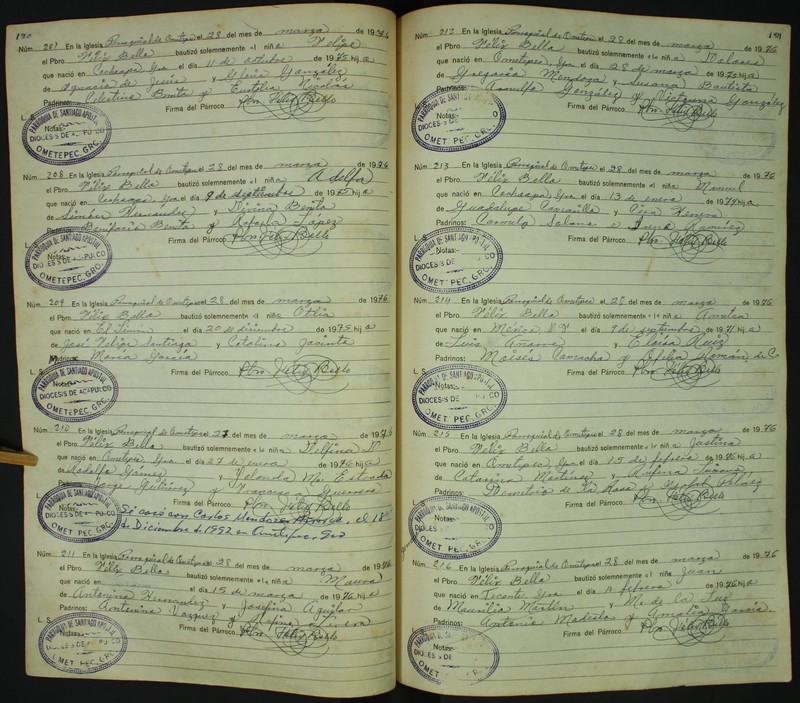 130
Núm. 207 En la Iglesia Parroquial de Ometepec el 28 del mes de marzo de 1976
el Pbro. Félix Bello bautizó solemnemente a l niña Felipe
que nació en Cochoapa, Gro. el día 11 de octubre de 1975 hij a
de Ignacio de Jesús y Gloria González
Padrinos: Celestino Benito y Eustolia Nicolás
Firma del Párroco Pbro. Félix Bello
L. S.
Notas:
PARROQUIA DE SANTIAGO APOSTOL
DIOCESIS DE ACAPULCO
OMETEPEC, GRO.
Núm. 208 En la Iglesia Parroquial de Ometepec el 28 del mes de marzo de 1976
el Pbro. Félix Bello bautizó solemnemente a l niña Adelfa
que nació en Cochoapa Gro. el día 9 de septiembre de 1975 hij a
de Simón Hernández y Divina Benito
Padrinos: Bonifacio Benito y López
Firma del Párroco Pbro. Félix Bello
L. S.
Notas:
PARROQUIA DE SANTIAGO APOSTOL
DIOCESIS DE ACAPULCO
OMETEPEC, GRO.
Núm. 209 En la Iglesia Parroquial de Ometepec el 28 del mes de marzo de 1976
el Pbro. Félix Bello bautizó solemnemente a l niña Otilia
que nació en El Limón el día 20 de diciembre de 1975 hij a
de José Felipe Santiago y Catalina Jacinto
Padrinos: María García
Firma del Párroco Pbro. Félix Bello
L. S.
Notas:
PARROQUIA DE SANTIAGO APOSTOL
DIOCESIS DE ACAPULCO
OMETEPEC, GRO.
Núm. 210 En la Iglesia Parroquial de Ometepec el 27 del mes de marzo de 1976
el Pbro. Félix Bello bautizó solemnemente a l niña Delfina
que nació en Ometepec, Gro. el día 27 de enero de 1976 hij a
de Rodolfo Gómez y Yolanda Ma. Estrada
Padrinos: Jorge Gutiérrez y Francisca Guerrero
Firma del Párroco Pbro. Félix Bello
L. S.
Notas: Se casó con Carlos Mendoza el 18
de Diciembre de 1992 en Ometepec, Gro
PARROQUIA DE SANTIAGO APOSTOL
DIOCESIS DE ACAPULCO
OMETEPEC, GRO.
Núm. 211 En la Iglesia Parroquial de Ometepec el 28 del mes de marzo de 1976
el Pbro. Félix Bello bautizó solemnemente a l niña Maura
que nació en el día 15 de marzo de 1976 hij a
de Antonino Hernández y Josefina Aguilar
Padrinos: Antonino Vázquez y
Firma del Párroco Pbro. Félix Bello
L. S.
Notas:
PARROQUIA DE SANTIAGO APOSTOL
DIOCESIS DE ACAPULCO
OMETEPEC, GRO.
131
Núm. 212 En la Iglesia Parroquial de Ometepec el 28 del mes de marzo de 1976
el Pbro. Félix Bello bautizó solemnemente a l niña Dolores
que nació en Ometepec, Gro. el día 28 de marzo de 1970 hij a
de Gregorio Mendoza y Susana Bautista
Padrinos: Arnulfo González y Victorina González
Firma del Párroco Pbro. Félix Bello
L. S.
Notas:
PARROQUIA DE SANTIAGO APOSTOL
DIOCESIS DE
OMETEPEC, GRO.
Núm. 213 En la Iglesia Parroquial de Ometepec el 28 del mes de marzo de 1976
el Pbro. Félix Bello bautizó solemnemente a l niña Manuel
que nació en Cochoapa, Gro. el día 13 de enero de 1974 hij a
de Guadalupe
Padrinos: Solano e Ramírez
Firma del Párroco Pbro. Félix Bello
L. S.
Notas:
PARROQUIA DE SANTIAGO APOSTOL
DIOCESIS DE ACAPULCO
OMETEPEC, GRO.
Núm. 214 En la Iglesia Parroquial de Ometepec el 28 del mes de marzo de 1976
el Pbro. Félix Bello bautizó solemnemente a l niña Amelia
que nació en México D.F. el día 9 de septiembre de 1971 hij a
de Luis Añorve y Eloisa Ruiz
Padrinos: Moisés Camacho y Ofelia Román de C
Firma del Párroco Pbro. Félix Bello
L. S.
Notas:
PARROQUIA DE SANTIAGO APOSTOL
DIOCESIS DE ACAPULCO
OMETEPEC, GRO.
Núm. 215 En la Iglesia Parroquial de Ometepec el 28 del mes de marzo de 1976
el Pbro. Félix Bello bautizó solemnemente a l niña Jostina
que nació en Ometepec, Gro. el día 15 de febrero de 1976 hij a
de Catarino Martínez y
Padrinos: Demetrio de la Rosa e Isabel Peláez
Firma del Párroco Pbro. Félix Bello
L. S.
Notas:
PARROQUIA DE SANTIAGO APOSTOL
DIOCESIS DE ACAPULCO
OMETEPEC, GRO.
Núm. 216 En la Iglesia Parroquial de Ometepec el 28 del mes de marzo de 1976
el Pbro. Félix Bello bautizó solemnemente a l niña Juan
que nació en Gro. el día febrero de 1976 hij a
de Maurilio Martín y Ma. de la Luz
Padrinos: Antonio Modesto y Amalia García
Firma del Párroco Pbro. Félix Bello
L. S.
Notas:
PARROQUIA DE SANTIAGO APOSTOL
DIOCESIS DE
OMETEPEC, GRO.